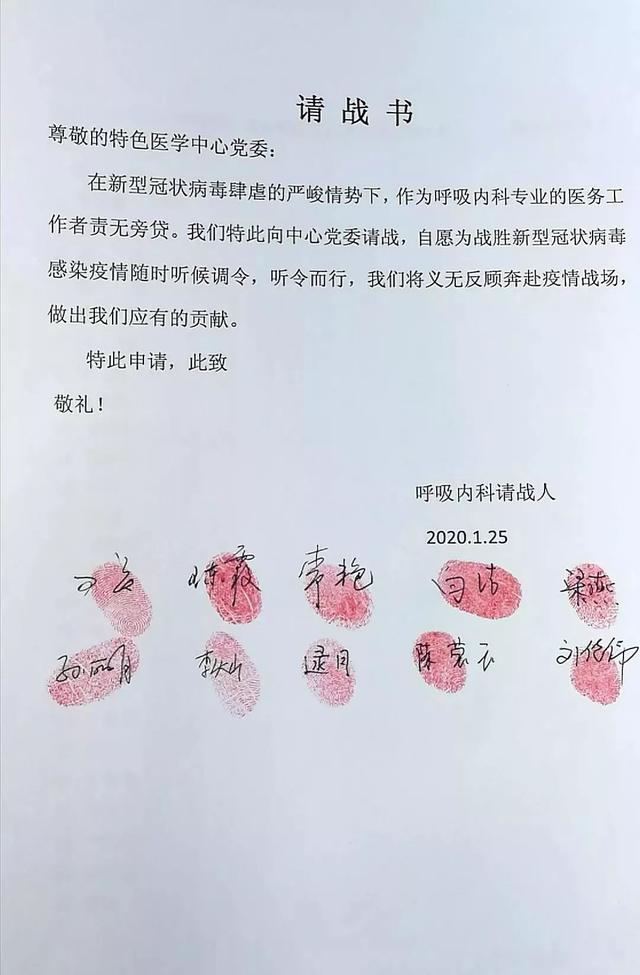 请战书
尊敬的特色医学中心党委：
在新型冠状病毒肆虐的严峻情势下，作为呼吸内科专业的医务工
作者责无旁贷。我们特此向中心党委请战，自愿为战胜新型冠状病毒
感染疫情随时听候调令，听令而行，我们将义无反顾奔赴疫情战场，
做出我们应有的贡献。
特此申请，此致
敬礼！
呼吸内科请战人
2020.1.25
常艳
梁燕
孙丽明
陈慕云